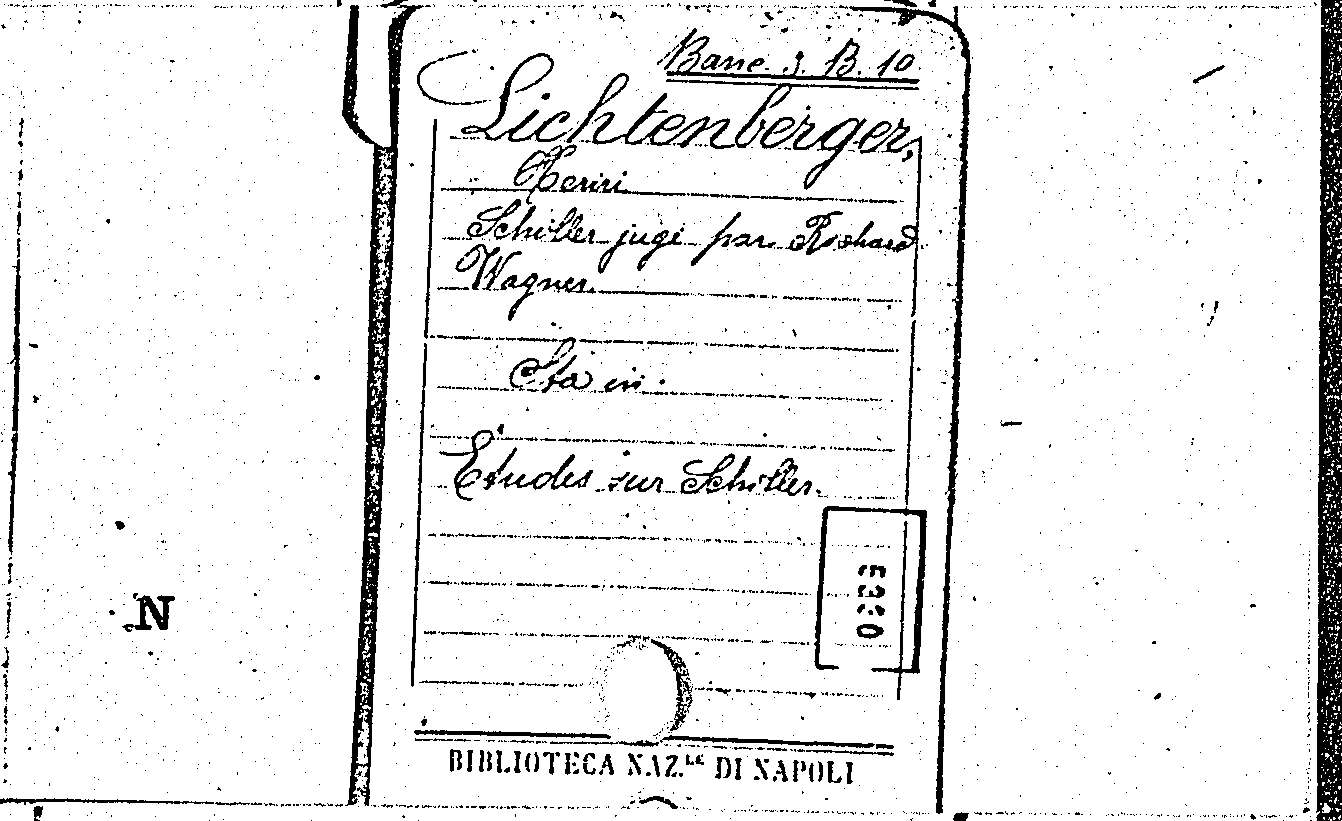 Barre 3. B. 10
Lichtenberger,
Henri
Schiller jugé par Richard
Wagner.
Sta in:
Études sur Schiller.
N
BIBLIOTECA NAZ.LE DI NAPOLI